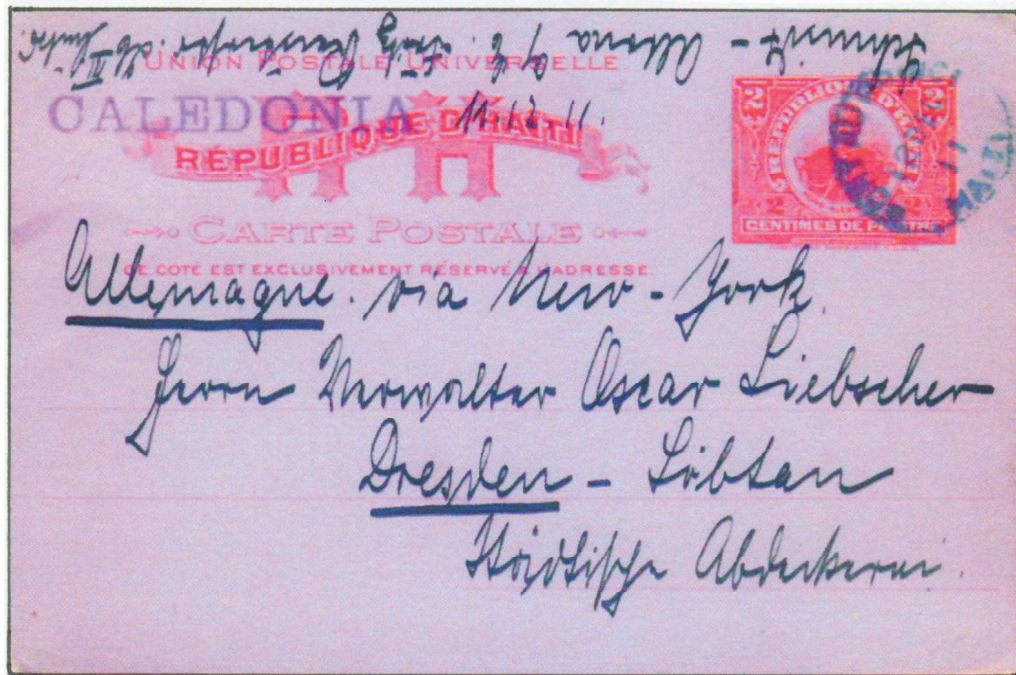 Schmidt - Altona a/E.
UNION POSTALE UNIVERSELLE
CALEDONIA
11.12.11.
RÉPUBLIQUE D'HAITI
CARTE POSTALE
CE COTÉ EST EXCLUSIVEMENT RÉSERVÉ A L'ADRESSE.
2 2
RÉPUBLIQUE D'HAITI
2 2
CENTIMES DE PIASTRE
HAITI
Allemagne. via New-York.
Herrn Verwalter Oscar Liebscher
Dresden - Löbtau
Städtische Abdeckerei.